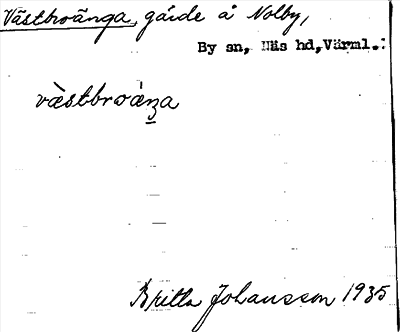 Västbroänga, gärde å Nolby,
By sn, Näs hd, Värml.
vàstbroáŋa
Britta Johansson 1935